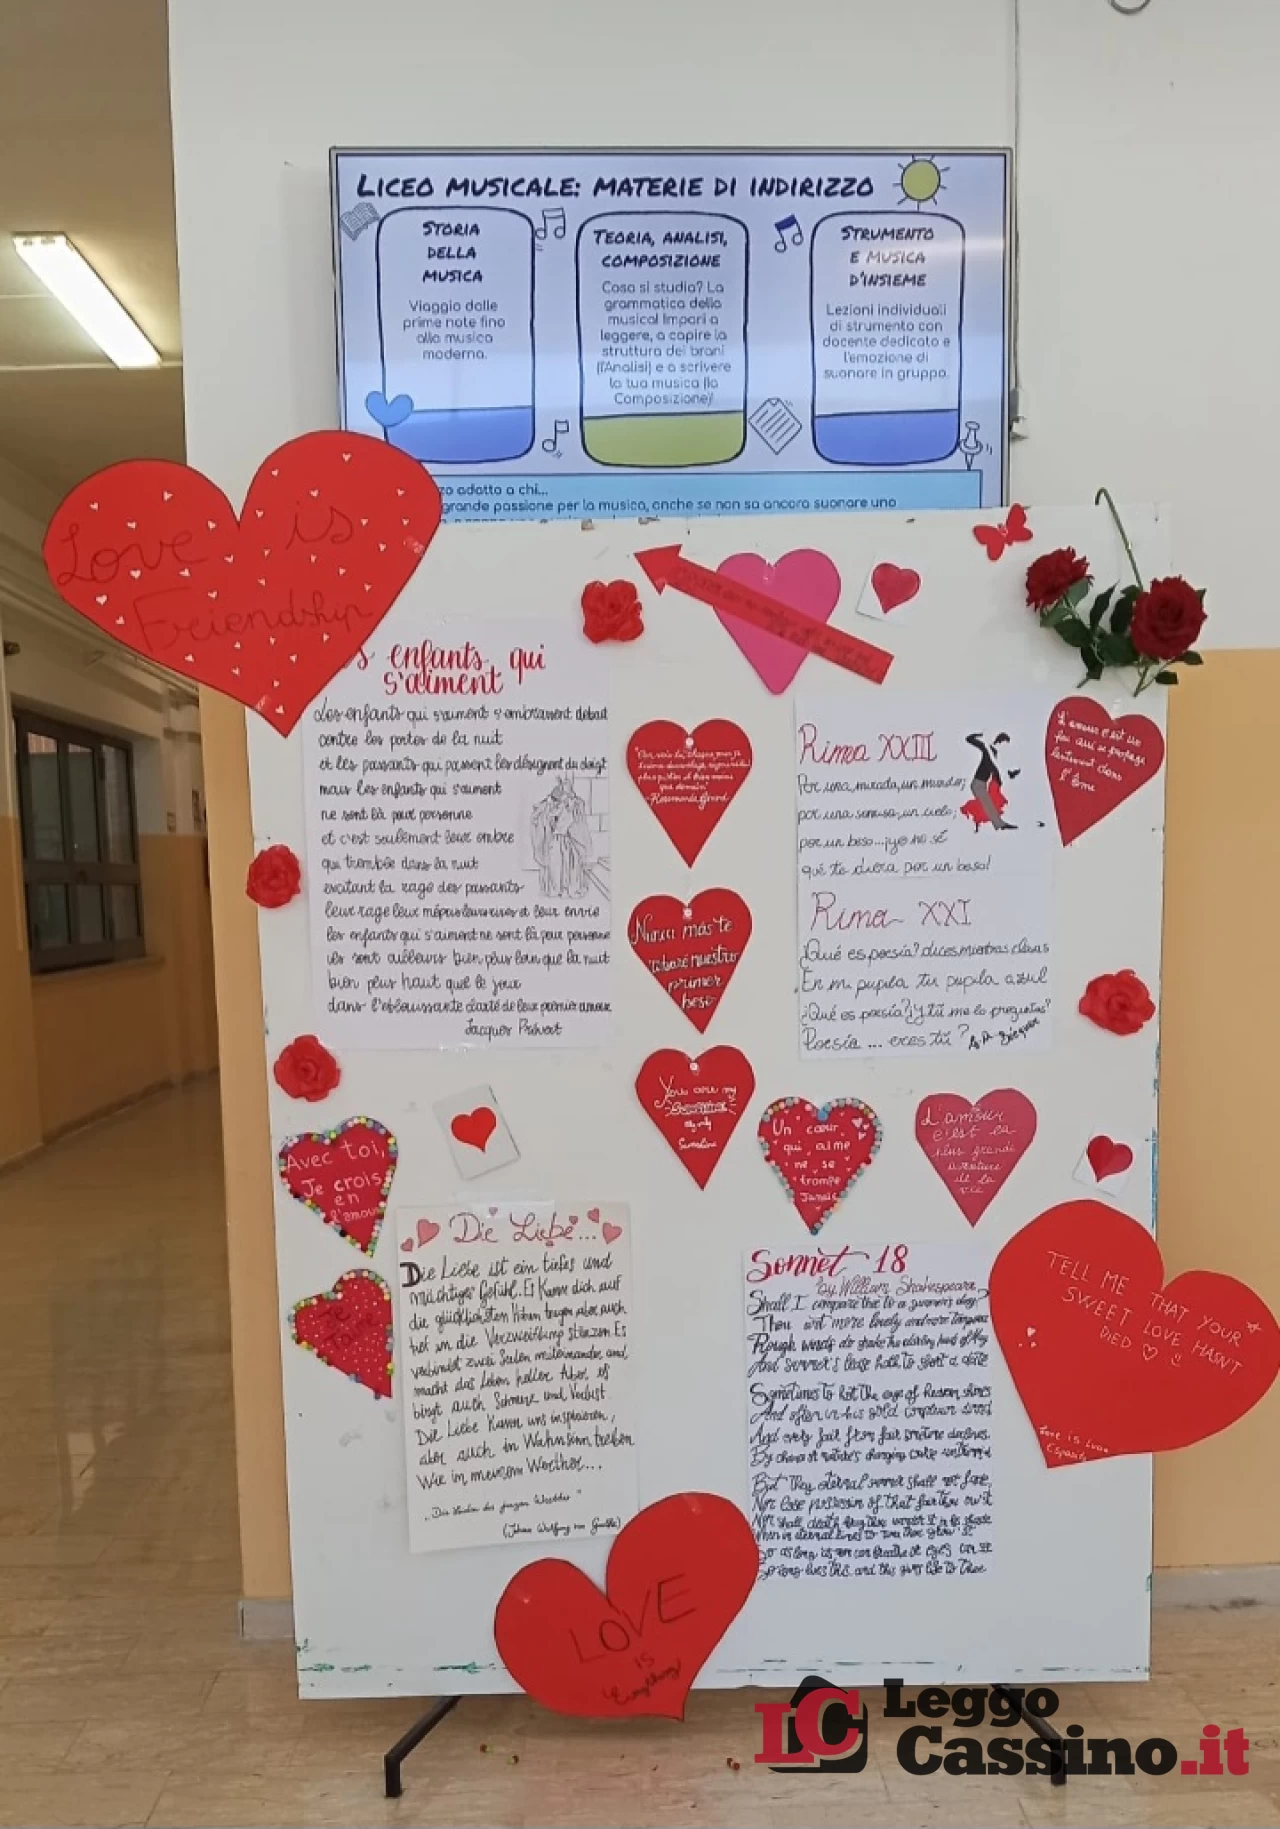 LICEO MUSICALE: MATERIE DI INDIRIZZO
STORIA
DELLA
MUSICA
Viaggio dalle
prime note fino
alla musica
moderna.
TEORIA, ANALISI,
COMPOSIZIONE
Cosa si studia? La
grammatica della
musica! Impari a
leggere, a capire la
struttura dei brani
(l'Analisi) e a scrivere
la tua musica (la
Composizione)!
STRUMENTO
E MUSICA
D'INSIEME
Lezioni individuali
di strumento con
docente dedicato e
l'emozione di
suonare in gruppo.
zo adatto a chi...
grande passione per la musica, anche se non sa ancora suonare uno
Love is
Friendship
s enfants qui
s'aiment
Les enfants qui s'aiment s'embrassent debout
contre les portes de la nuit
et les passants qui passent les désignent du doigt
mais les enfants qui s'aiment
ne sont là pour personne
et c'est seulement leur ombre
qui tremble dans la nuit
excitant la rage des passants
leur rage leur mépris leurs rires et leur envie
les enfants qui s'aiment ne sont là pour personne
ils sont ailleurs bien plus loin que la nuit
bien plus haut que le jour
dans l'éblouissante clarté de leur premier amour
Jacques Prévert
Rosemonde Gérard
Rima XXIII
Por una mirada, un mundo;
por una sonrisa, un cielo;
por un beso...¡yo no sé
qué te diera por un beso!
Rima XXI
¿Qué es poesía? dices mientras clavas
En mi pupila tu pupila azul
¿Qué es poesía? ¿Y tú me lo preguntas?
Poesía ... eres tú?
L'amour est un
feu qui se propage
lentement dans
l'âme
Nunca más te
robaré nuestro
primer
beso
You are my
Sunshine
my only
Sunshine
Un cœur
qui aime
ne se
trompe
jamais
L'amour
c'est la
plus grande
aventure
de la
vie
Avec toi,
Je crois
en
l'amour
Je
t'aime
Die Liebe...
Die Liebe ist ein tiefes und
mächtiges Gefühl. Es kann dich auf
die glücklichsten Höhen tragen aber auch
tief in die Verzweiflung stürzen. Es
verbindet zwei Seelen miteinander und
macht das Leben heller. Aber es
birgt auch Schmerz und Verlust.
Die Liebe kann uns inspirieren,
aber auch in Wahnsinn treiben
Wie in meinem Werther...
(Johann Wolfgang von Goethe)
Sonnet 18
by William Shakespeare
Shall I compare thee to a summer's day?
Thou art more lovely and more temperate
Rough winds do shake the darling buds of May
And summer's lease hath too short a date
Sometimes too hot the eye of heaven shines
And often is his gold complexion
And every fair from fair sometime declines
By chance or nature's changing course untrimm'd
But thy eternal summer shall not fade,
Nor lose possession of that fair thou ow'st
Nor shall death brag thou wander'st in his shade
When in eternal lines to time thou grow'st
So long as men can breathe or eyes can see
So long lives this, and this gives life to thee
TELL ME THAT YOUR
SWEET LOVE HASN'T
DIED
Love is
LOVE
IS
Everything!
LC Leggo
Cassino.it